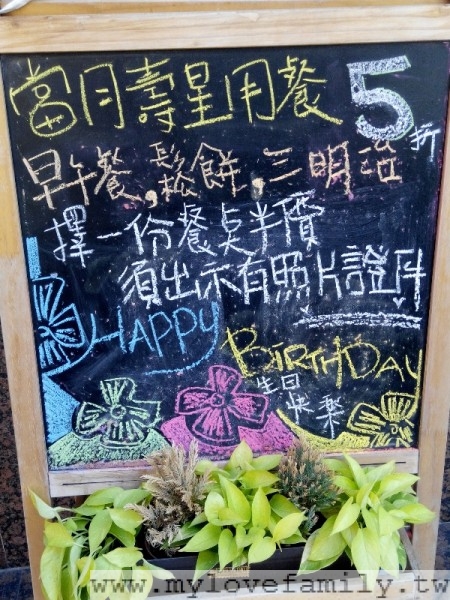 當月壽星用餐5折
早午餐,鬆餅,三明治
擇一份餐点半價
須出示有照片證件
HAPPY
BIRTHDAY
生日
快樂
www.mylovefamily.tw